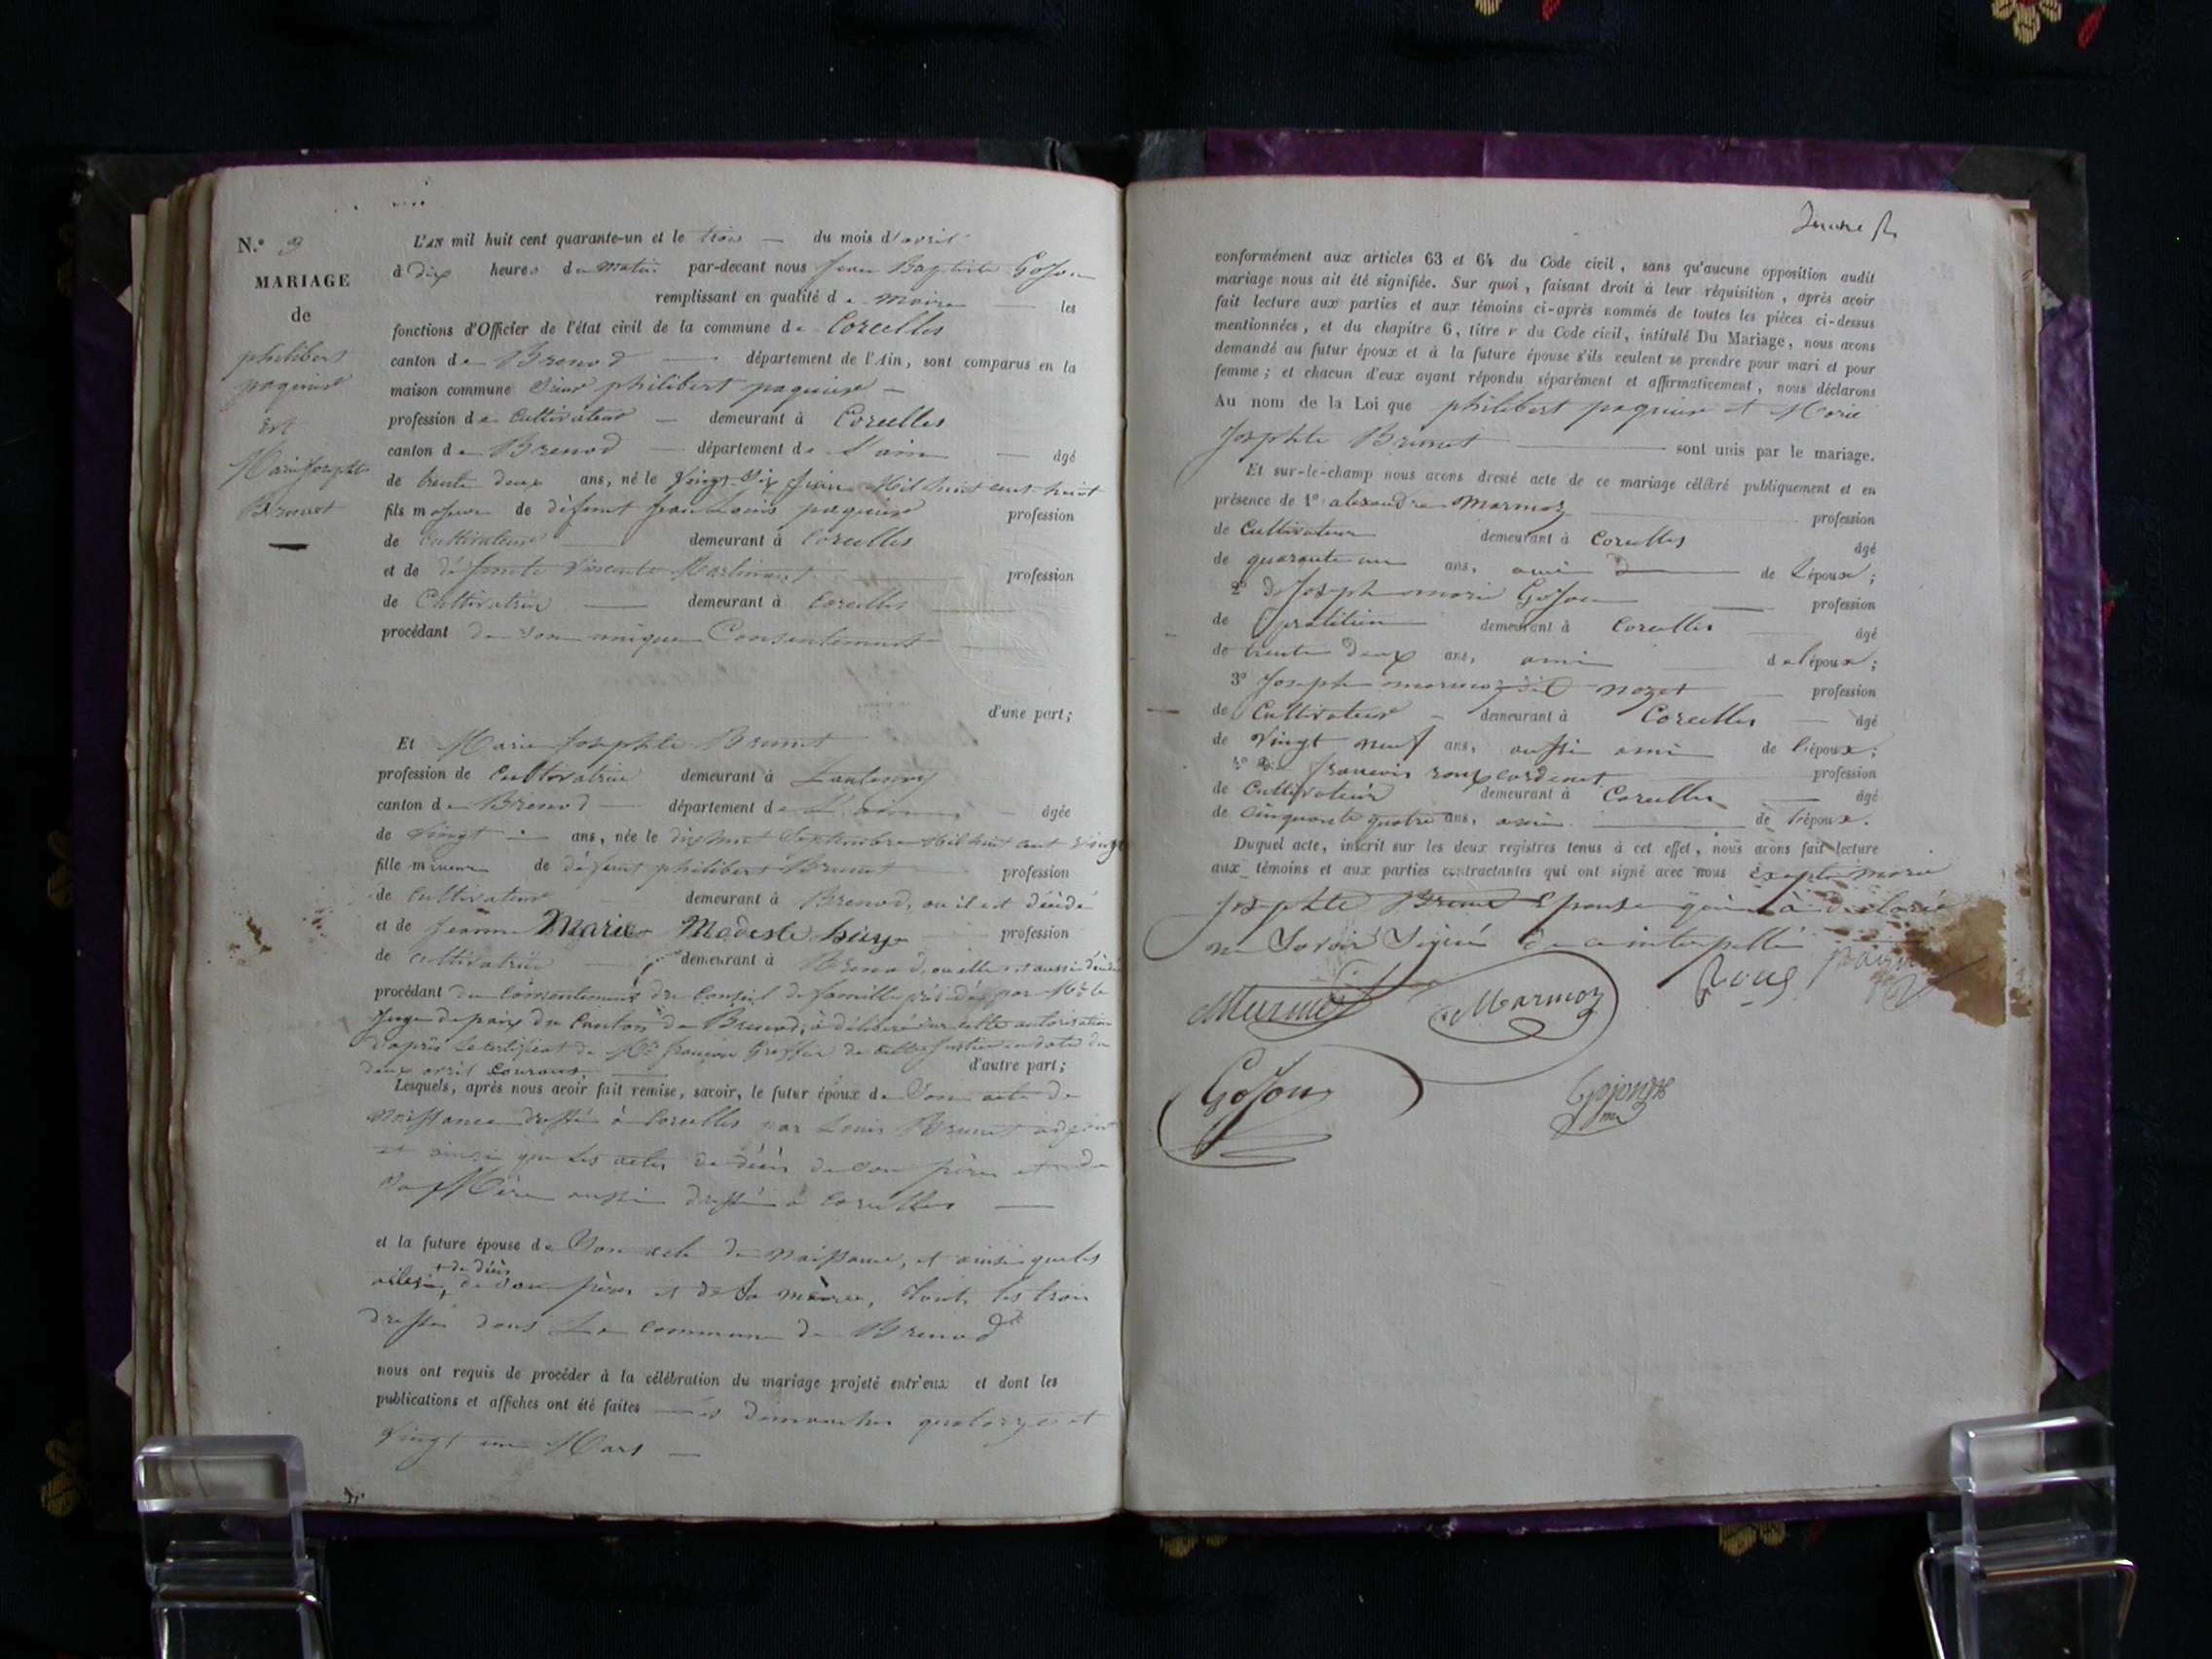 N.º 3
MARIAGE
de
philibert
paquier
Et
Marie Josephte
Brunet
L'AN mil huit cent quarante-un et le trois du mois d'avril
à dix heures du matin par-devant nous Jean Baptiste Gojon
remplissant en qualité de maire les
fonctions d'Officier de l'état civil de la commune de Corcelles
canton de Brenod département de l'Ain, sont comparus en la
maison commune Sieur philibert paquier
profession de Cultivateur demeurant à Corcelles
canton de Brenod département de l'ain âgé
de trente deux ans, né le Vingt Six Mil huit cent huit
fils majeur de défunt Jean Louis paquier profession
de Cultivateur demeurant à Corcelles
et de défunte profession
de Cultivatrice demeurant à Corcelles
procédant de son unique Consentement
d'une part;
Et Marie Josephte Brunet
profession de Cultivatrice demeurant à Lantenay
canton de Brenod département de L'ain âgée
de Vingt ans, née le dix huit Septembre Mil huit cent vingt
fille mineure de défunt philibert Brunet profession
de Cultivateur demeurant à Brenod, ou il est décédé
et de Jeanne Marie Modeste profession
de Cultivatrice demeurant à Brenod, ou elle est aussi décédée
procédant du Consentement du Conseil de famille présidé par Mr. le
Juge de paix du Canton de Brenod, à délibéré sur cette autorisation
d'après le certificat de Mr. Greffier de cette Justice en date du
deux avril Courant. d'autre part;
Lesquels, après nous avoir fait remise, savoir, le futur époux de Son acte de
Naissance dressé à Corcelles par Louis Brunet adjoint
et ainsi que les actes de décès de Son père et de
Sa Mère aussi dressé à Corcelles
et la future épouse de Son acte de Naissance, et ainsi que les
actes + de décès de Son père et de Sa mère, tout les trois
dressés dans La commune de Brenod
nous ont requis de procéder à la célébration du mariage projeté entr'eux et dont les
publications et affiches ont été faites les dimanches quatorze et
Vingt un Mars
conformément aux articles 63 et 64 du Code civil, sans qu'aucune opposition audit
mariage nous ait été signifiée. Sur quoi, faisant droit à leur réquisition, après avoir
fait lecture aux parties et aux témoins ci-après nommés de toutes les pièces ci-dessus
mentionnées, et du chapitre 6, titre v du Code civil, intitulé Du Mariage, nous avons
demandé au futur époux et à la future épouse s'ils veulent se prendre pour mari et pour
femme; et chacun d'eux ayant répondu séparément et affirmativement, nous déclarons
Au nom de la Loi que philibert paquier et Marie
Josephte Brunet sont unis par le mariage.
Et sur-le-champ nous avons dressé acte de ce mariage célébré publiquement et en
présence de 1º alexandre Marmoz profession
de Cultivateur demeurant à Corcelles âgé
de quarante un ans, ami de l'époux;
2º Joseph marie Gojon profession
de demeurant à Corcelles âgé
de trente deux ans, ami de l'époux;
3º Joseph marmoz dit nozet profession
de Cultivateur demeurant à Corcelles âgé
de Vingt neuf ans, aussi ami de l'époux;
4º francois roux cardinet profession
de Cultivateur demeurant à Corcelles âgé
de Cinquante quatre ans, ami de l'époux.
Duquel acte, inscrit sur les deux registres tenus à cet effet, nous avons fait lecture
aux témoins et aux parties contractantes qui ont signé avec nous excepté marie
Josephte Brunet Epouse qui à déclaré
ne Savoir Signé de ce interpellé
Marmoz
Marmoz
Roux
Gojon
Gojon